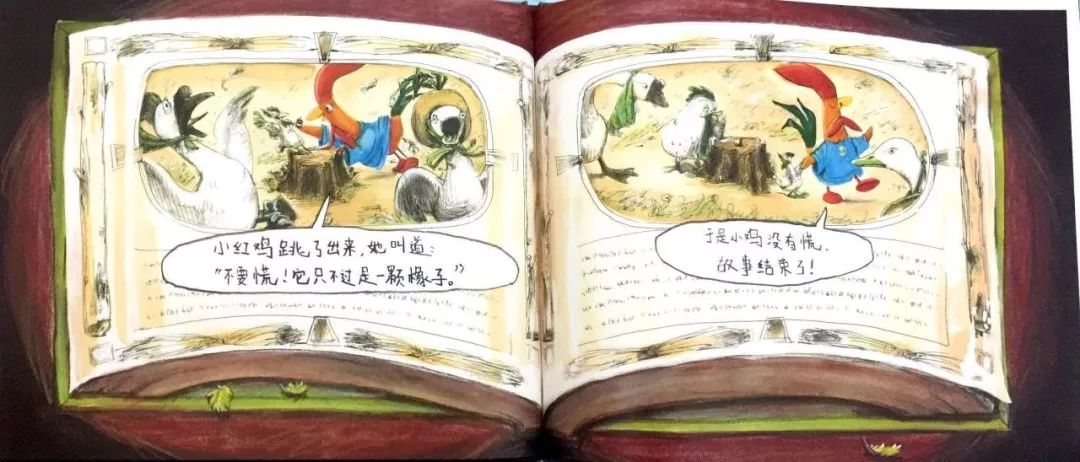 小红鸡跳了出来，她叫道：
“不要慌！它只不过是一颗橡子。”
于是小鸡没有慌．
故事结束了！